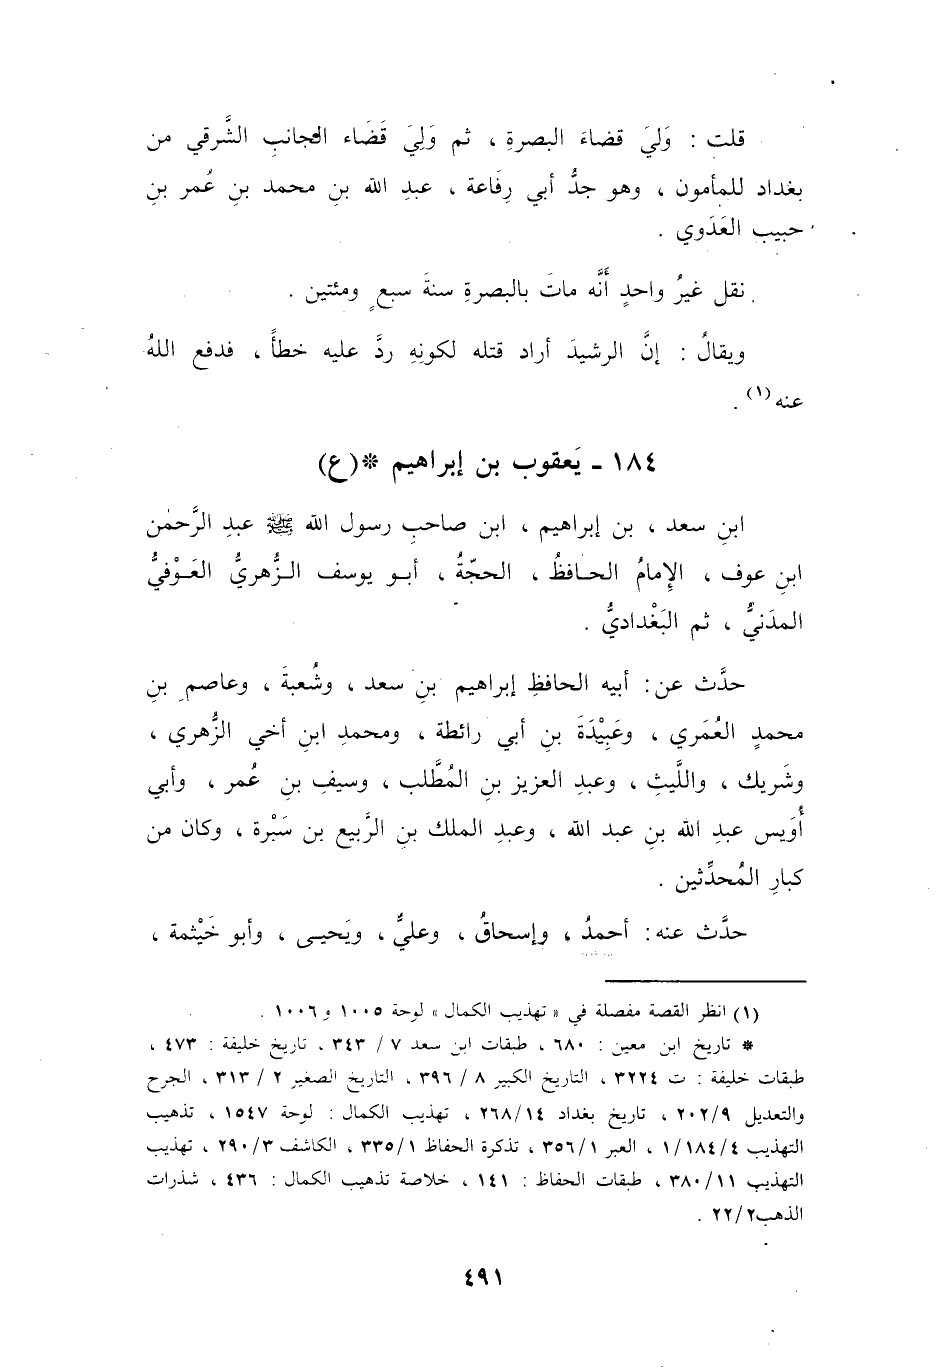 قلت : وَليَ قضاءَ البصرةِ ، ثم وَلِيَ قَضَاء الجانبِ الشَّرقي من
بغداد للمأمون ، وهو جدُّ أبي رِفَاعة ، عبدِ الله بنِ محمد بنِ عُمر بنِ
حبيب العَدَوي .
نقل غيرُ واحدٍ أنَّه ماتَ بالبصرةِ سنةَ سبعٍ ومئتين .
ويقالُ : إنَّ الرشيدَ أراد قتله لكونِهِ ردَّ عليه خطأً ، فدفع اللهُ
عنه (١) .
١٨٤ - يَعقوب بن إبراهيم *(ع)
ابنِ سعد ، بن إبراهيم ، ابن صاحبِ رسول الله ﷺ عبدِ الرَّحمٰن
ابنِ عوف ، الإمامُ الحافظُ ، الحجّةُ ، أبو يوسف الزُّهريُّ العَوْفيُّ
المدَنيُّ ، ثم البَغْداديُّ .
حدَّث عن : أبيه الحافظِ إبراهيم بنِ سعد ، وشُعبةَ ، وعاصمِ بنِ
محمدٍ العُمَري ، وعَبِيْدَةَ بنِ أبي رائطة ، ومحمدِ ابنِ أخي الزُّهري ،
وشَريك ، واللَّيثِ ، وعبدِ العزيز بنِ المُطَّلب ، وسيفِ بنِ عُمر ، وأبي
أُوَيس عبدِ الله بنِ عبد الله ، وعبدِ الملك بنِ الرَّبيع بن سَبْرة ، وكان من
كبارِ المُحدِّثين .
حدَّث عنه : أحمدُ ، وإسحاقُ ، وعليٌّ ، ويَحيى ، وأبو خَيْثمة ،
(١) انظر القصة مفصلة في « تهذيب الكمال » لوحة ١٠٠٥ و ١٠٠٦ .
* تاريخ ابن معين : ٦٨٠ ، طبقات ابن سعد ٧ / ٣٤٣ ، تاريخ خليفة : ٤٧٣ ،
طبقات خليفة : ت ٣٢٢٤ ، التاريخ الكبير ٨ / ٣٩٦ ، التاريخ الصغير ٢ / ٣١٣ ، الجرح
والتعديل ٢٠٢/٩ ، تاريخ بغداد ٢٦٨/١٤ ، تهذيب الكمال : لوحة ١٥٤٧ ، تذهيب
التهذيب ١/١٨٤/٤ ، العبر ٣٥٦/١ ، تذكرة الحفاظ ٣٣٥/١ ، الكاشف ٢٩٠/٣ ، تهذيب
التهذيب ٣٨٠/١١ ، طبقات الحفاظ : ١٤١ ، خلاصة تذهيب الكمال : ٤٣٦ ، شذرات
الذهب٢٢/٢ .
٤٩١